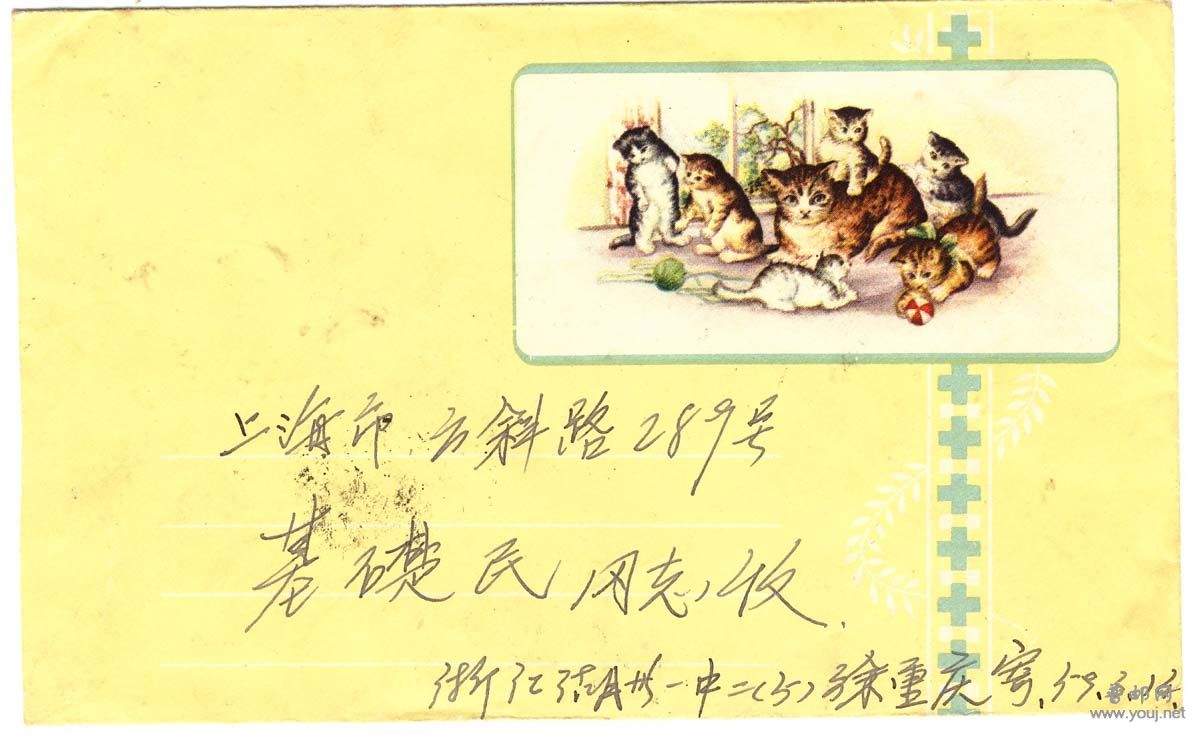 上海市云斜路289号
基礎民同志收
浙江湖州一中二(5)徐重庆寄.59.
www.youj.net